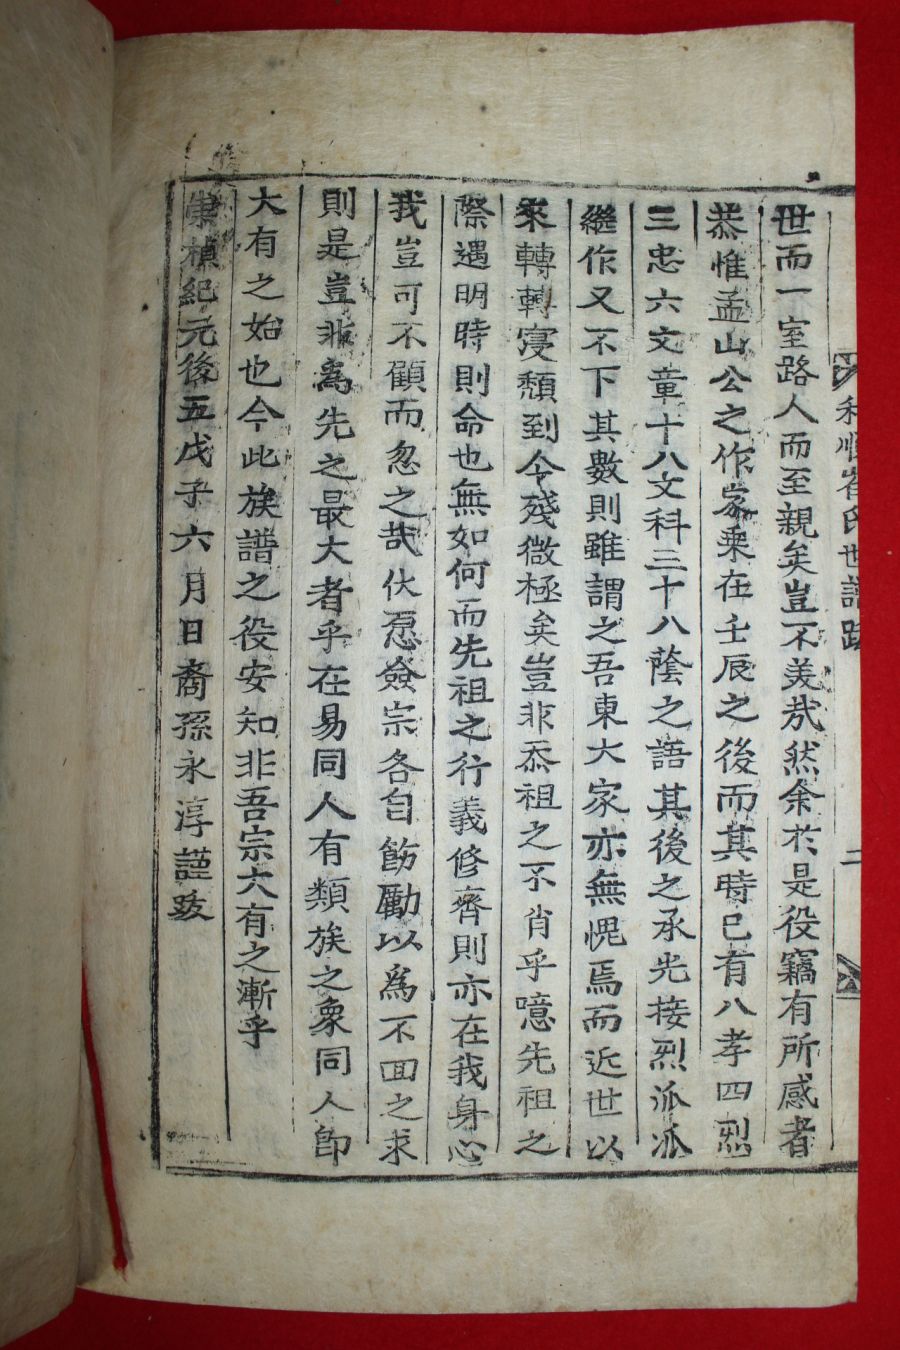 和順崔氏世譜跋 二
世而一室路人而至親矣豈不美哉然余於是役竊有所感者
恭惟孟山公之作家乗在壬辰之後而其時已有八孝四烈
三忠六文章十八文科三十八蔭之語其後之承光接烈派派
繼作又不下其數則雖謂之吾東大家亦無愧焉而近世以
來轉轉寖頹到今殘微極矣豈非忝祖之不肖乎噫先祖之
際遇明時則命也無如何而先祖之行義修齊則亦在我身心
我豈可不顧而忽之哉伏愿僉宗各自飭勵以爲不回之求
則是豈非爲先之最大者乎在易同人有類族之象同人卽
大有之始也今此族譜之役安知非吾宗大有之漸乎
崇禎紀元後五戊子六月日裔孫永淳謹跋